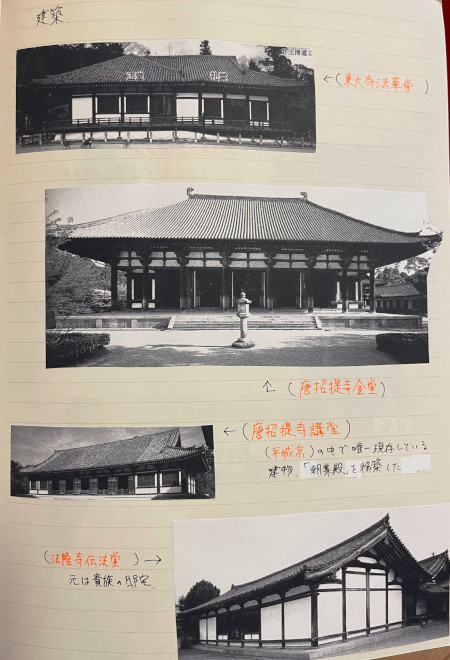 建築.
←(東大寺法華堂)
↑(唐招提寺金堂)
←(唐招提寺講堂)
(平城京)の中で唯一現存している
建物.「朝集殿」を移築した
(法隆寺伝法堂)→
元は貴族の邸宅.